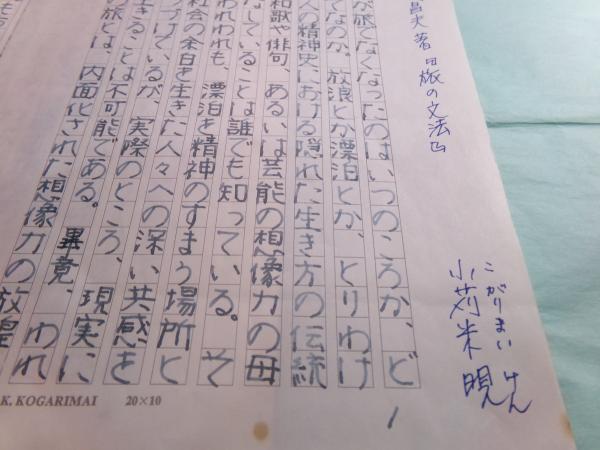 昌夫 著『旅の文法』
こがりまい けん
小苅米 晛
が旅でなくなったのはいつのころか、ど
てなのか。放浪とか漂泊とか、とりわけ
人の精神史における隠れた生き方の伝統
和歌や俳句、あるいは芸能の想像力の母
なしていることは誰でも知っている。そ
われわれも、漂泊を精神のすまう場所と
社会の余白を生きた人々への深い共感を
つづけているが、実際のところ、現実に
きることは不可能である。畢竟、われ
の旅とは、内面化された想像力の放
K. KOGARIMAI 20×10
1